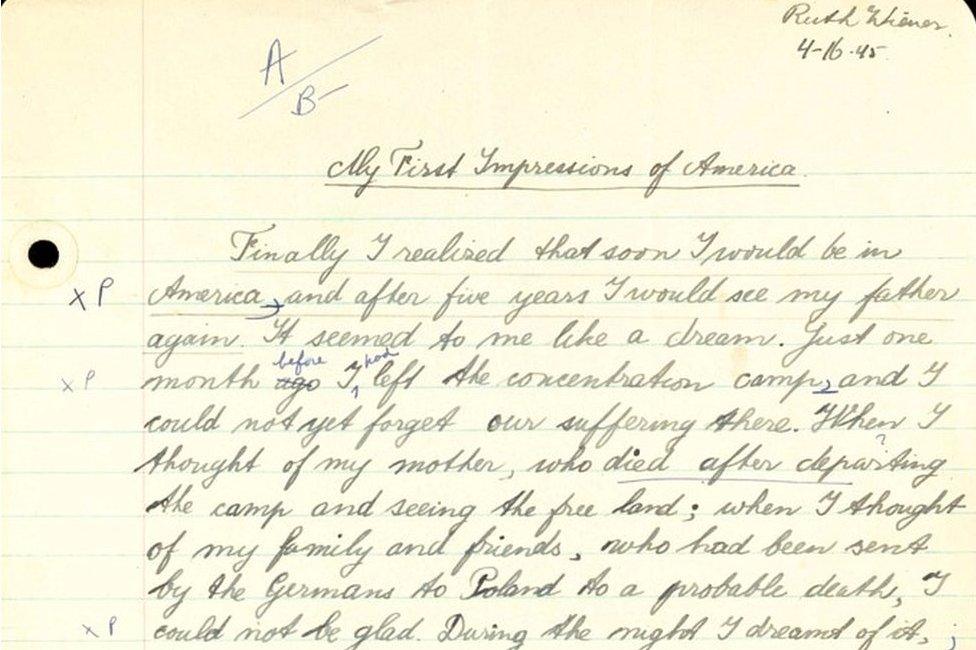 Ruth Wiener.
4-16-45
A
B-
My First Impressions of America.
Finally I realized that soon I would be in
x P America, and after five years I would see my father
again. It seemed to me like a dream. Just one
before had
x P month ago I left the concentration camp, and I
could not yet forget our suffering there. When I
?
thought of my mother, who died after departing
the camp and seeing the free land; when I thought
of my family and friends, who had been sent
by the Germans to Poland to a probable death, I
x P could not be glad. During the night I dreamt of it, ;